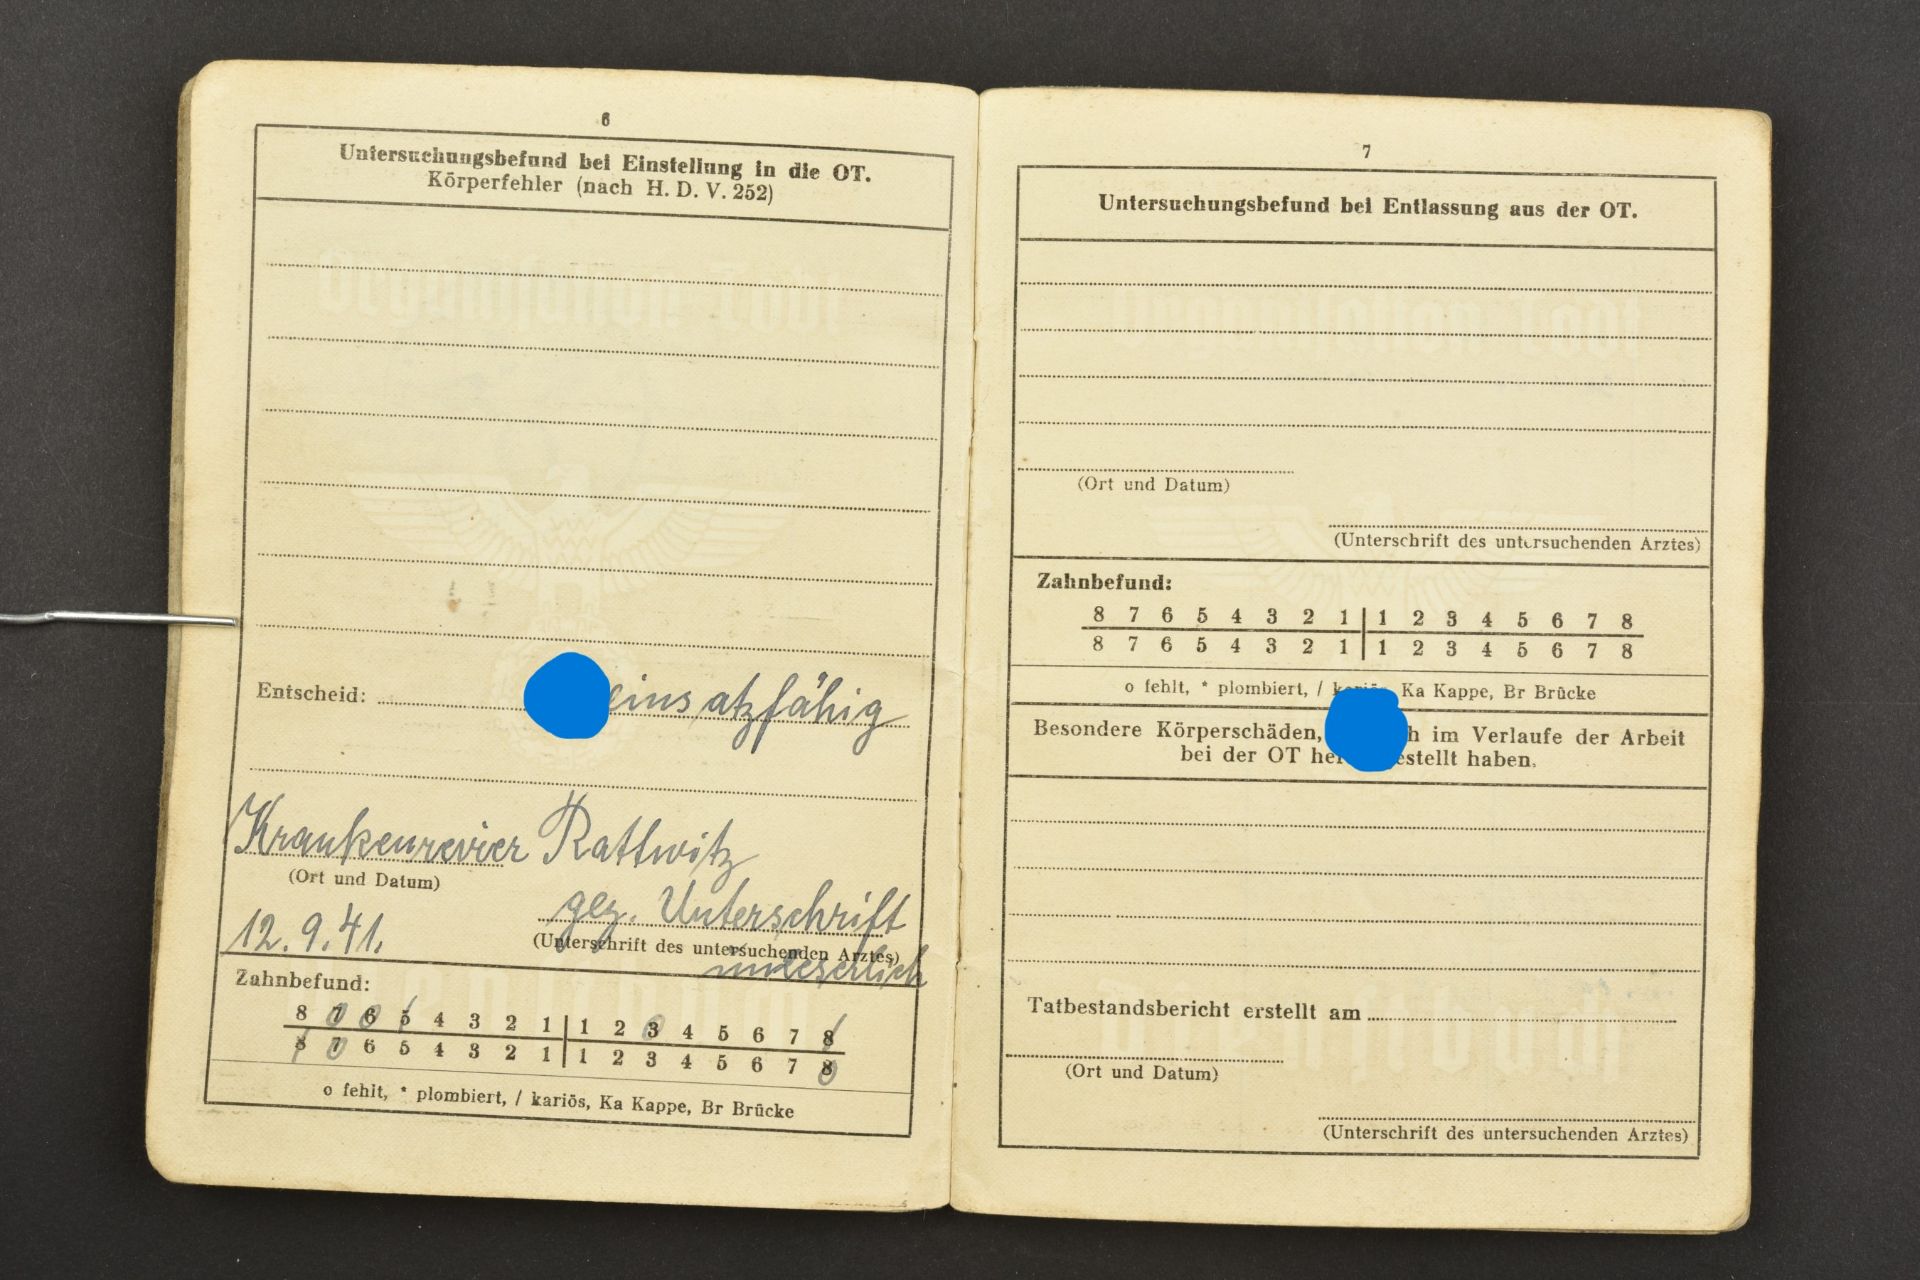 6
Untersuchungsbefund bei Einstellung in die OT.
Körperfehler (nach H. D. V. 252)
Entscheid: einsatzfähig
Krankenrevier Rattwitz
(Ort und Datum)
gez. Unterschrift
12. 9. 41.
(Unterschrift des untersuchenden Arztes)
unleserlich
Zahnbefund:
8 7 6 5 4 3 2 1 1 2 3 4 5 6 7 8
8 7 6 5 4 3 2 1 1 2 3 4 5 6 7 8
o fehlt, * plombiert, / kariös, Ka Kappe, Br Brücke
7
Untersuchungsbefund bei Entlassung aus der OT.
(Ort und Datum)
(Unterschrift des untersuchenden Arztes)
Zahnbefund:
8 7 6 5 4 3 2 1 1 2 3 4 5 6 7 8
8 7 6 5 4 3 2 1 1 2 3 4 5 6 7 8
o fehlt, * plombiert, / kariös, Ka Kappe, Br Brücke
Besondere Körperschäden, im Verlaufe der Arbeit
bei der OT haben.
Tatbestandsbericht erstellt am
(Ort und Datum)
(Unterschrift des untersuchenden Arztes)